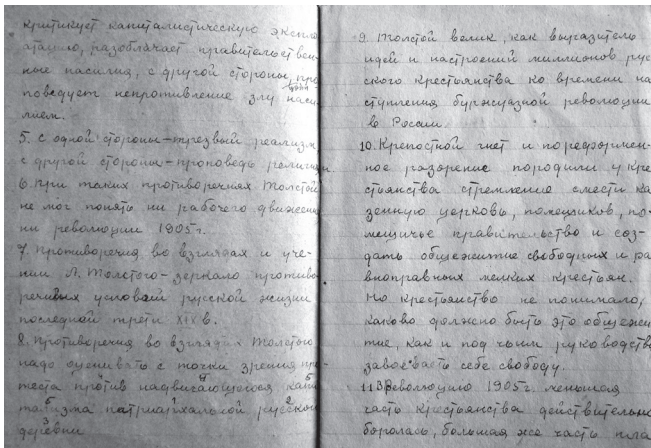 критикует капиталистическую экспло
атацию, разоблачает правительствен-
ные насилия, с другой стороны, про
поведует непротивление злу наси-
лием.
5. С одной стороны – трезвый реализм
с другой стороны – проповедь религии
6. При таких противоречиях Толстой
не мог понять ни рабочего движени
ни революции 1905 г.
7. Противоречия во взглядах и уче-
нии Л. Толстого – зеркало противо
речивых условий русской жизни
последной трети XIX в.
8. Противоречия во взглядах Толстого
надо оценивать с точки зрения про
теста против надвигающегося капи
тализма патриархальной русской
деревни
9. Толстой велик, как выразитель
идей и настроений миллионов рус
ского крестьянства ко времени на
ступления буржуазной революции
в России.
10. Крепостной гнет и пореформен-
ное разорение породили у кре
стьянства стремление смести ка
зенную церковь, помещиков, по-
мещичье правительство и соз-
дать общежитие свободных и ра
вноправных мелких крестьян.
Но крестьянство не понимало,
каково должно быть это общежи
тие, как и под чьим руководство
завоевать себе свободу.
11. В революцию 1905 г. меньшая
часть крестьянства действительно
боролась, большая же часть пла